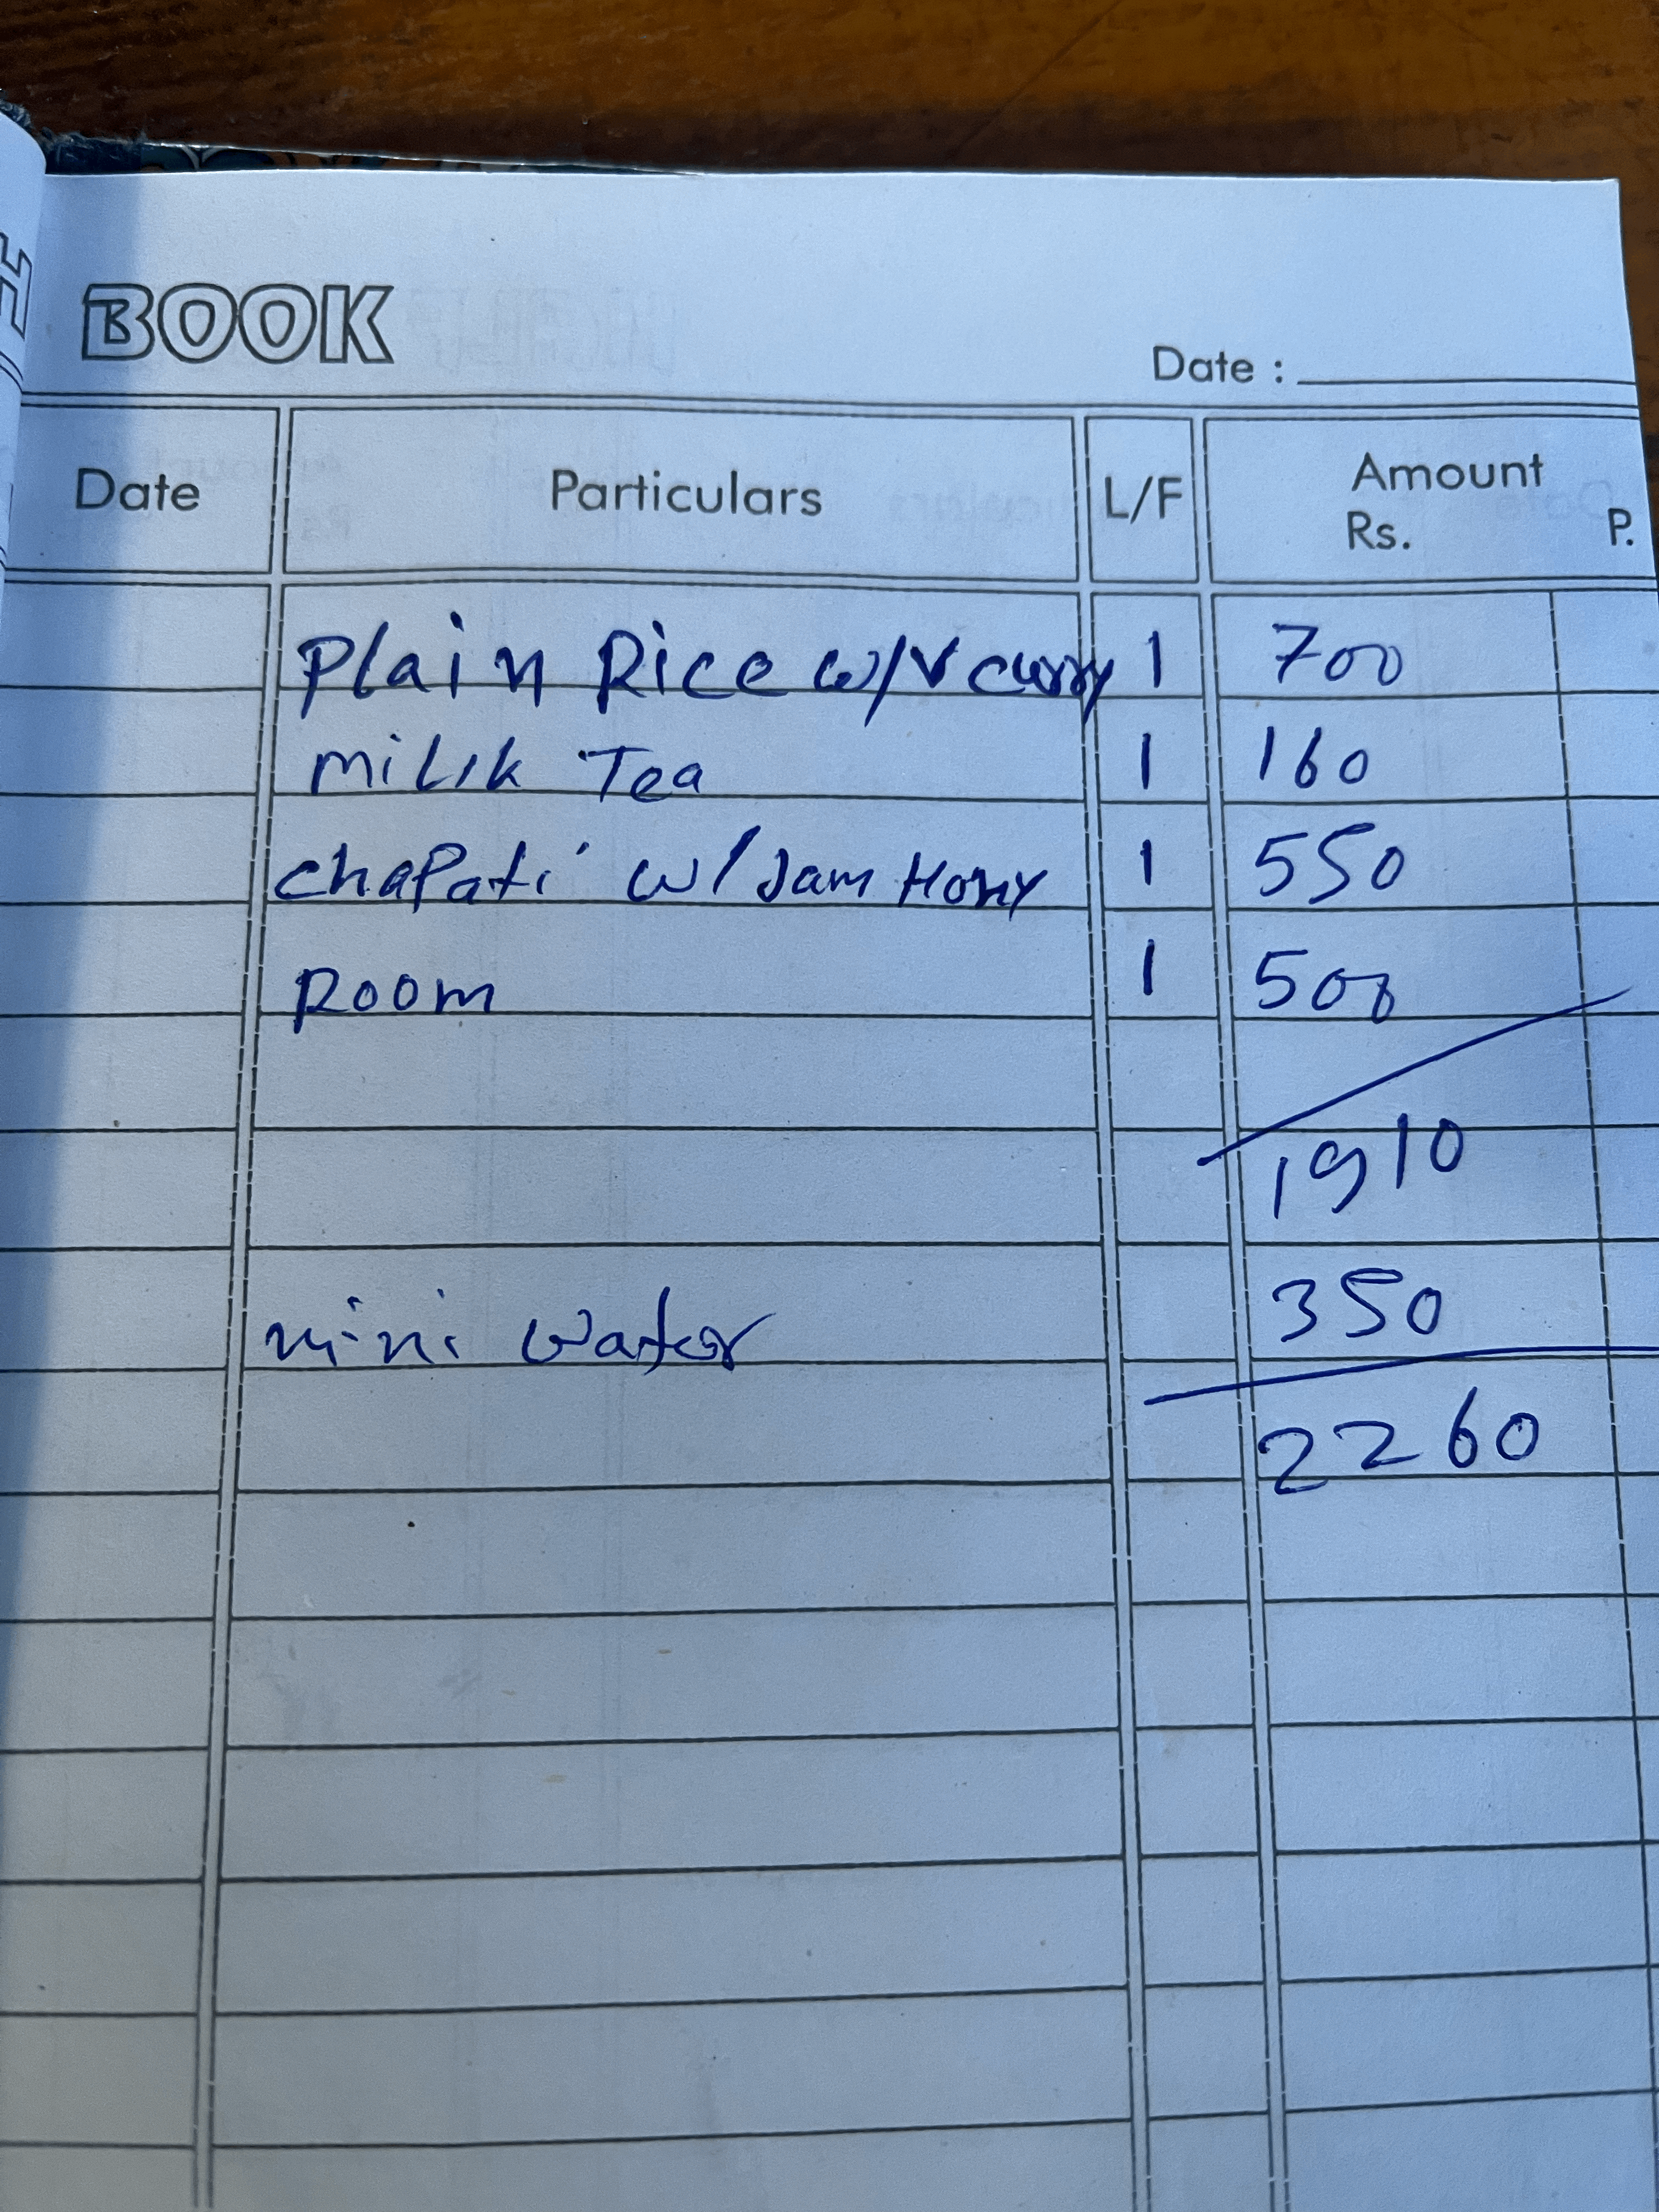 H
BOOK
Date :
Date Particulars L/F Amount Rs. P.
Plain Rice w/v curry 1 700
MiLik Tea 1 160
chapati w/Jam Hony 1 550
Room 1 500
1910
mini water 350
2260